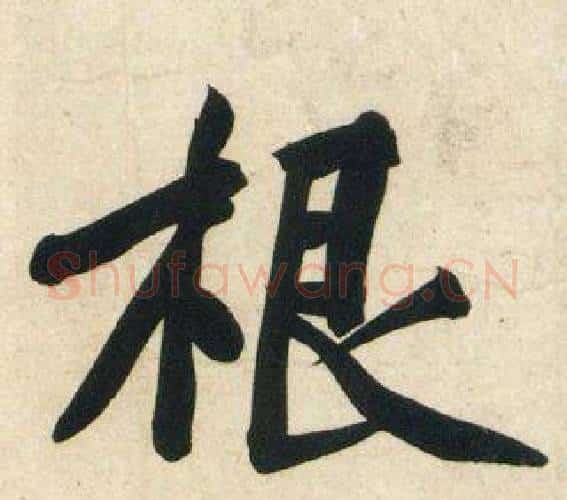 根
Shufawang.CN